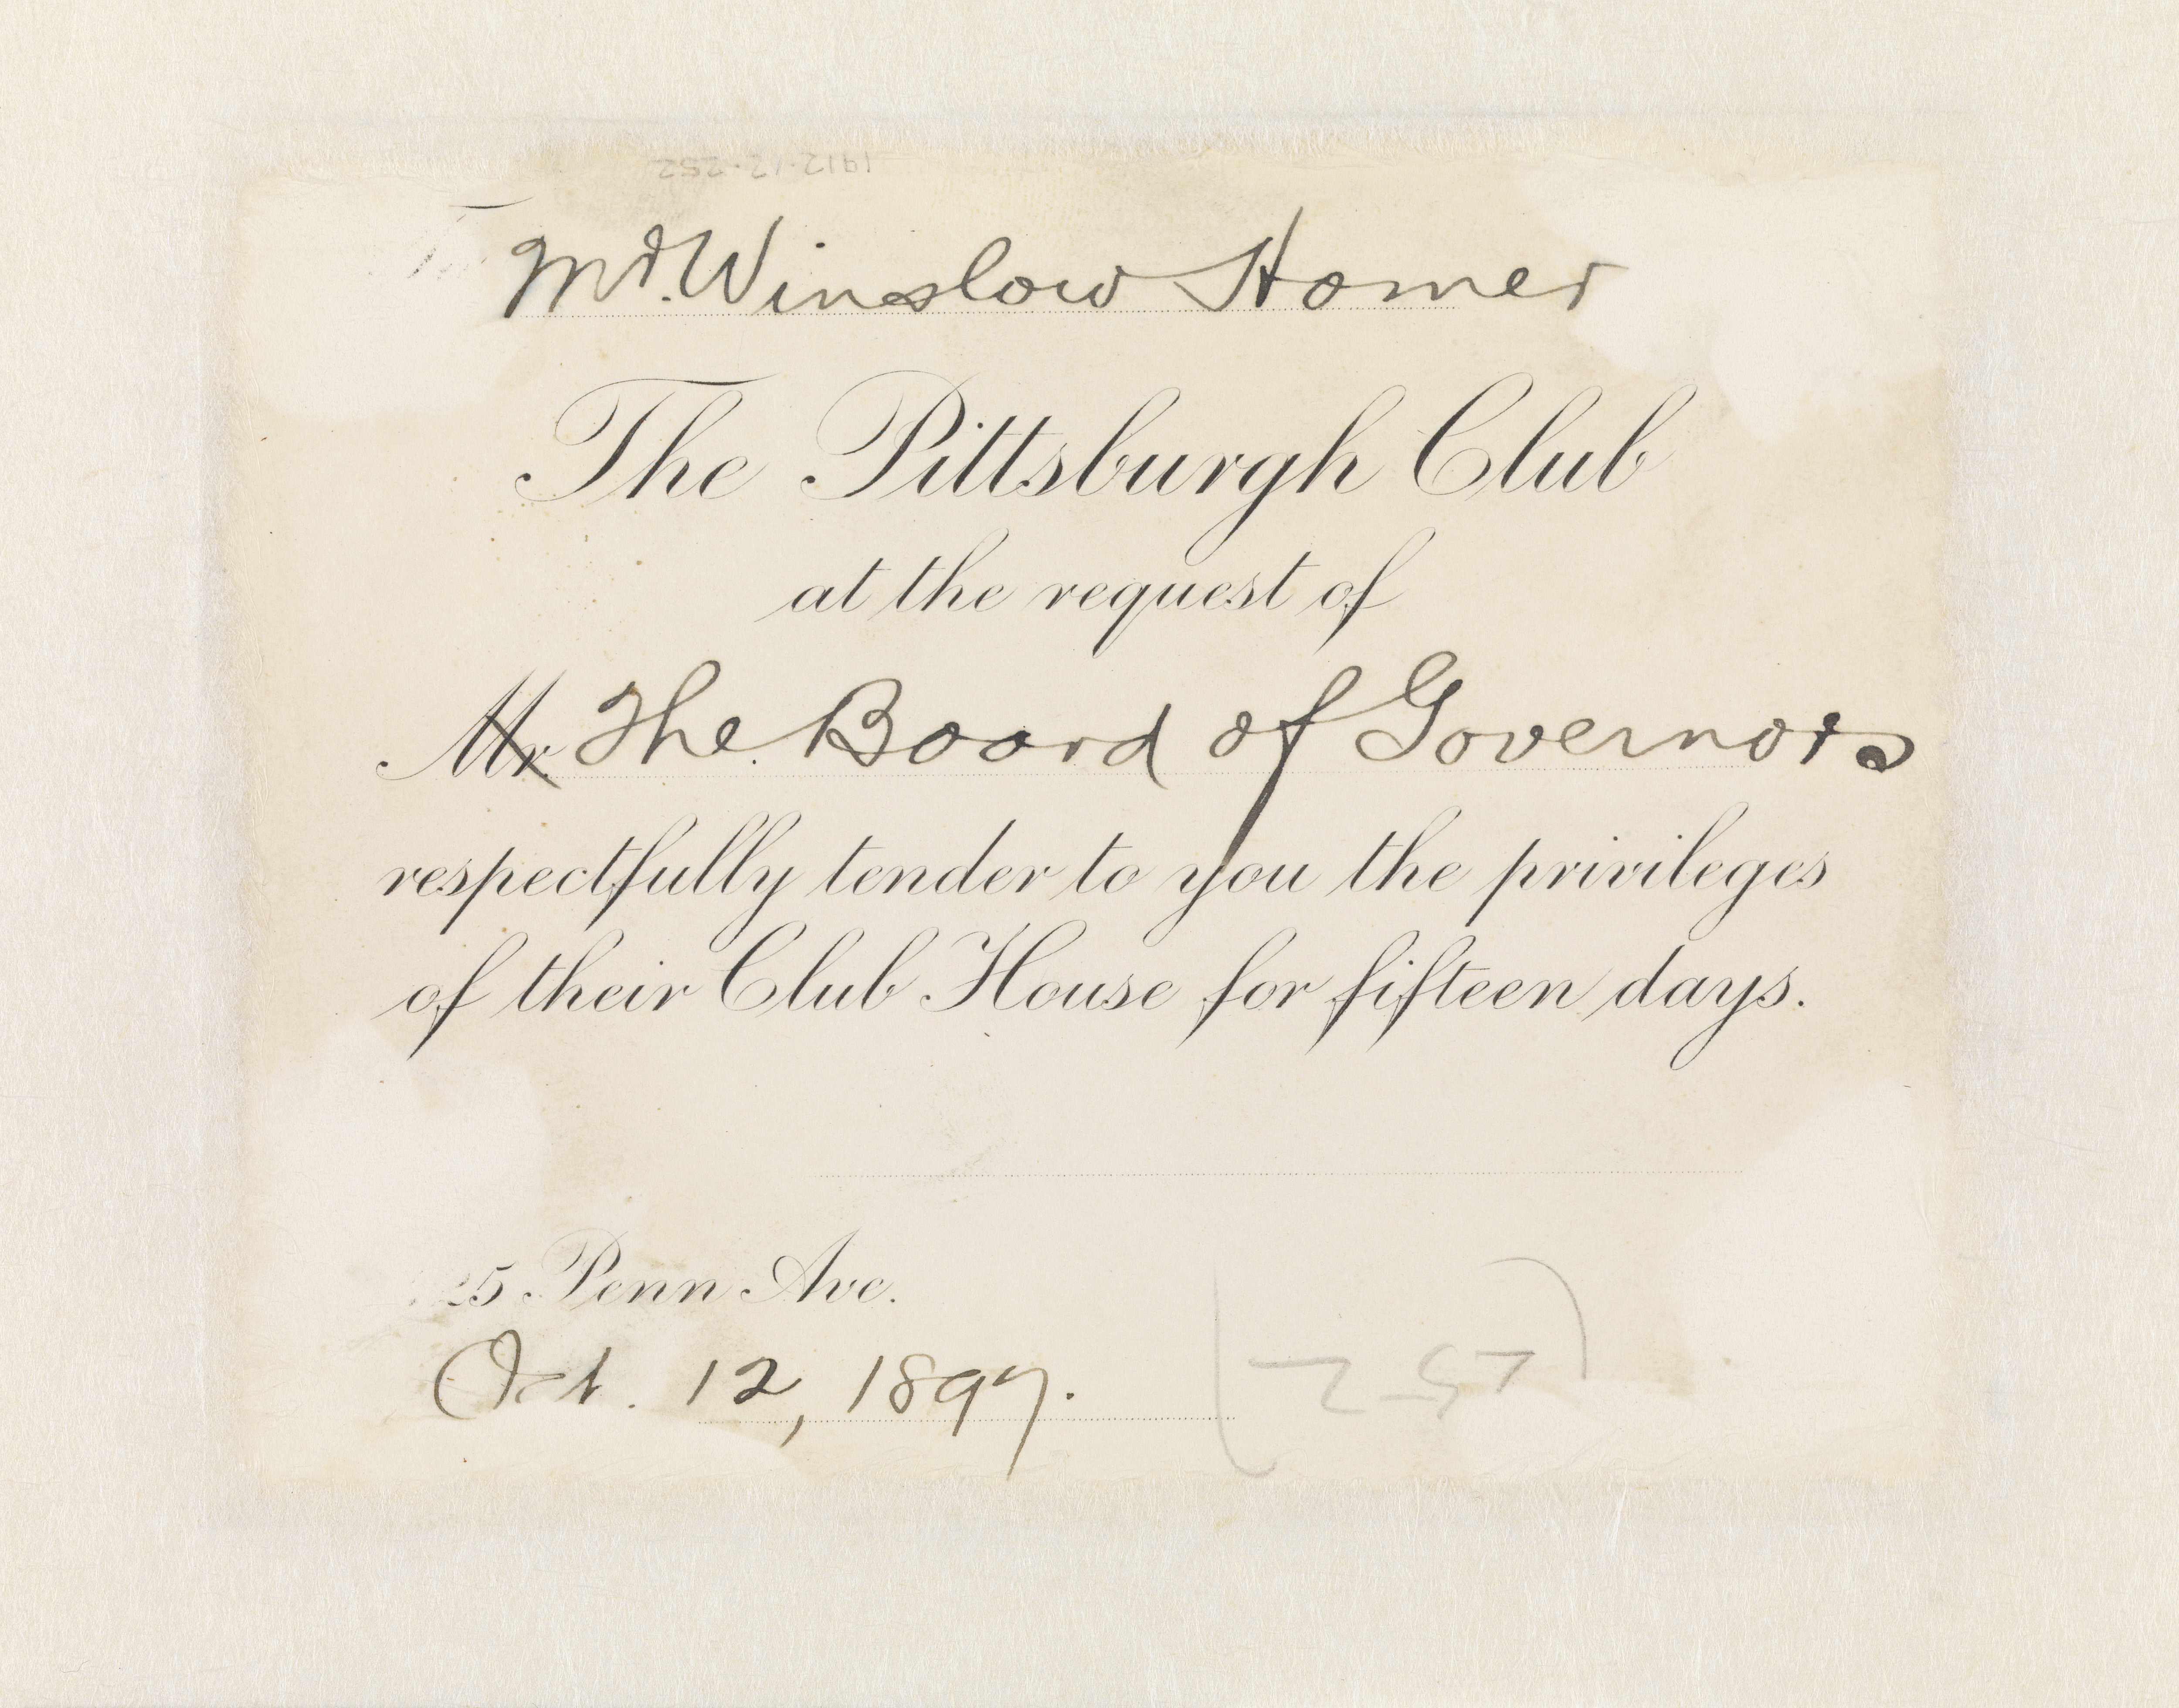 1912-12-252
Mr. Winslow Homer
The Pittsburgh Club
at the request of
Mr. The Board of Governors
respectfully tender to you the privileges
of their Club House for fifteen days.
25 Penn Ave.
Oct. 12, 1897.